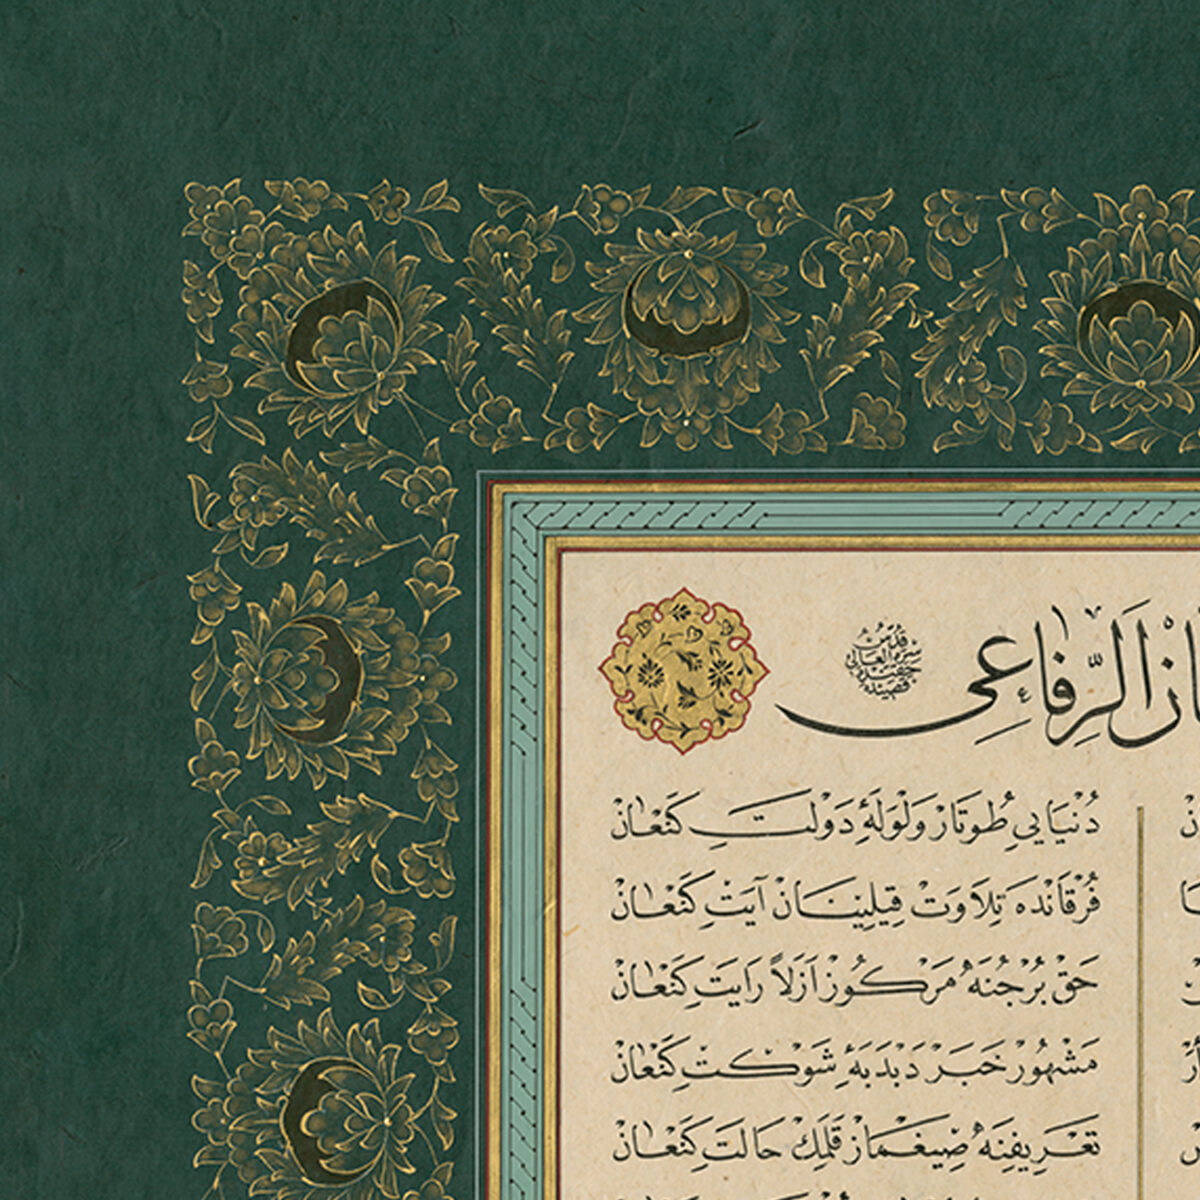 از الرفاعی
قدس
سره العالی
حقنده
قصیده
دنیایی طوتار ولولهٔ دولت کنعان
فرقانده تلاوت قیلینان آیت کنعان
حق برجنه مرکوز ازلاً رایت کنعان
مشهور خبر دبدبهٔ شوکت کنعان
تعریفنه صیغماز قلمك حالت کنعان